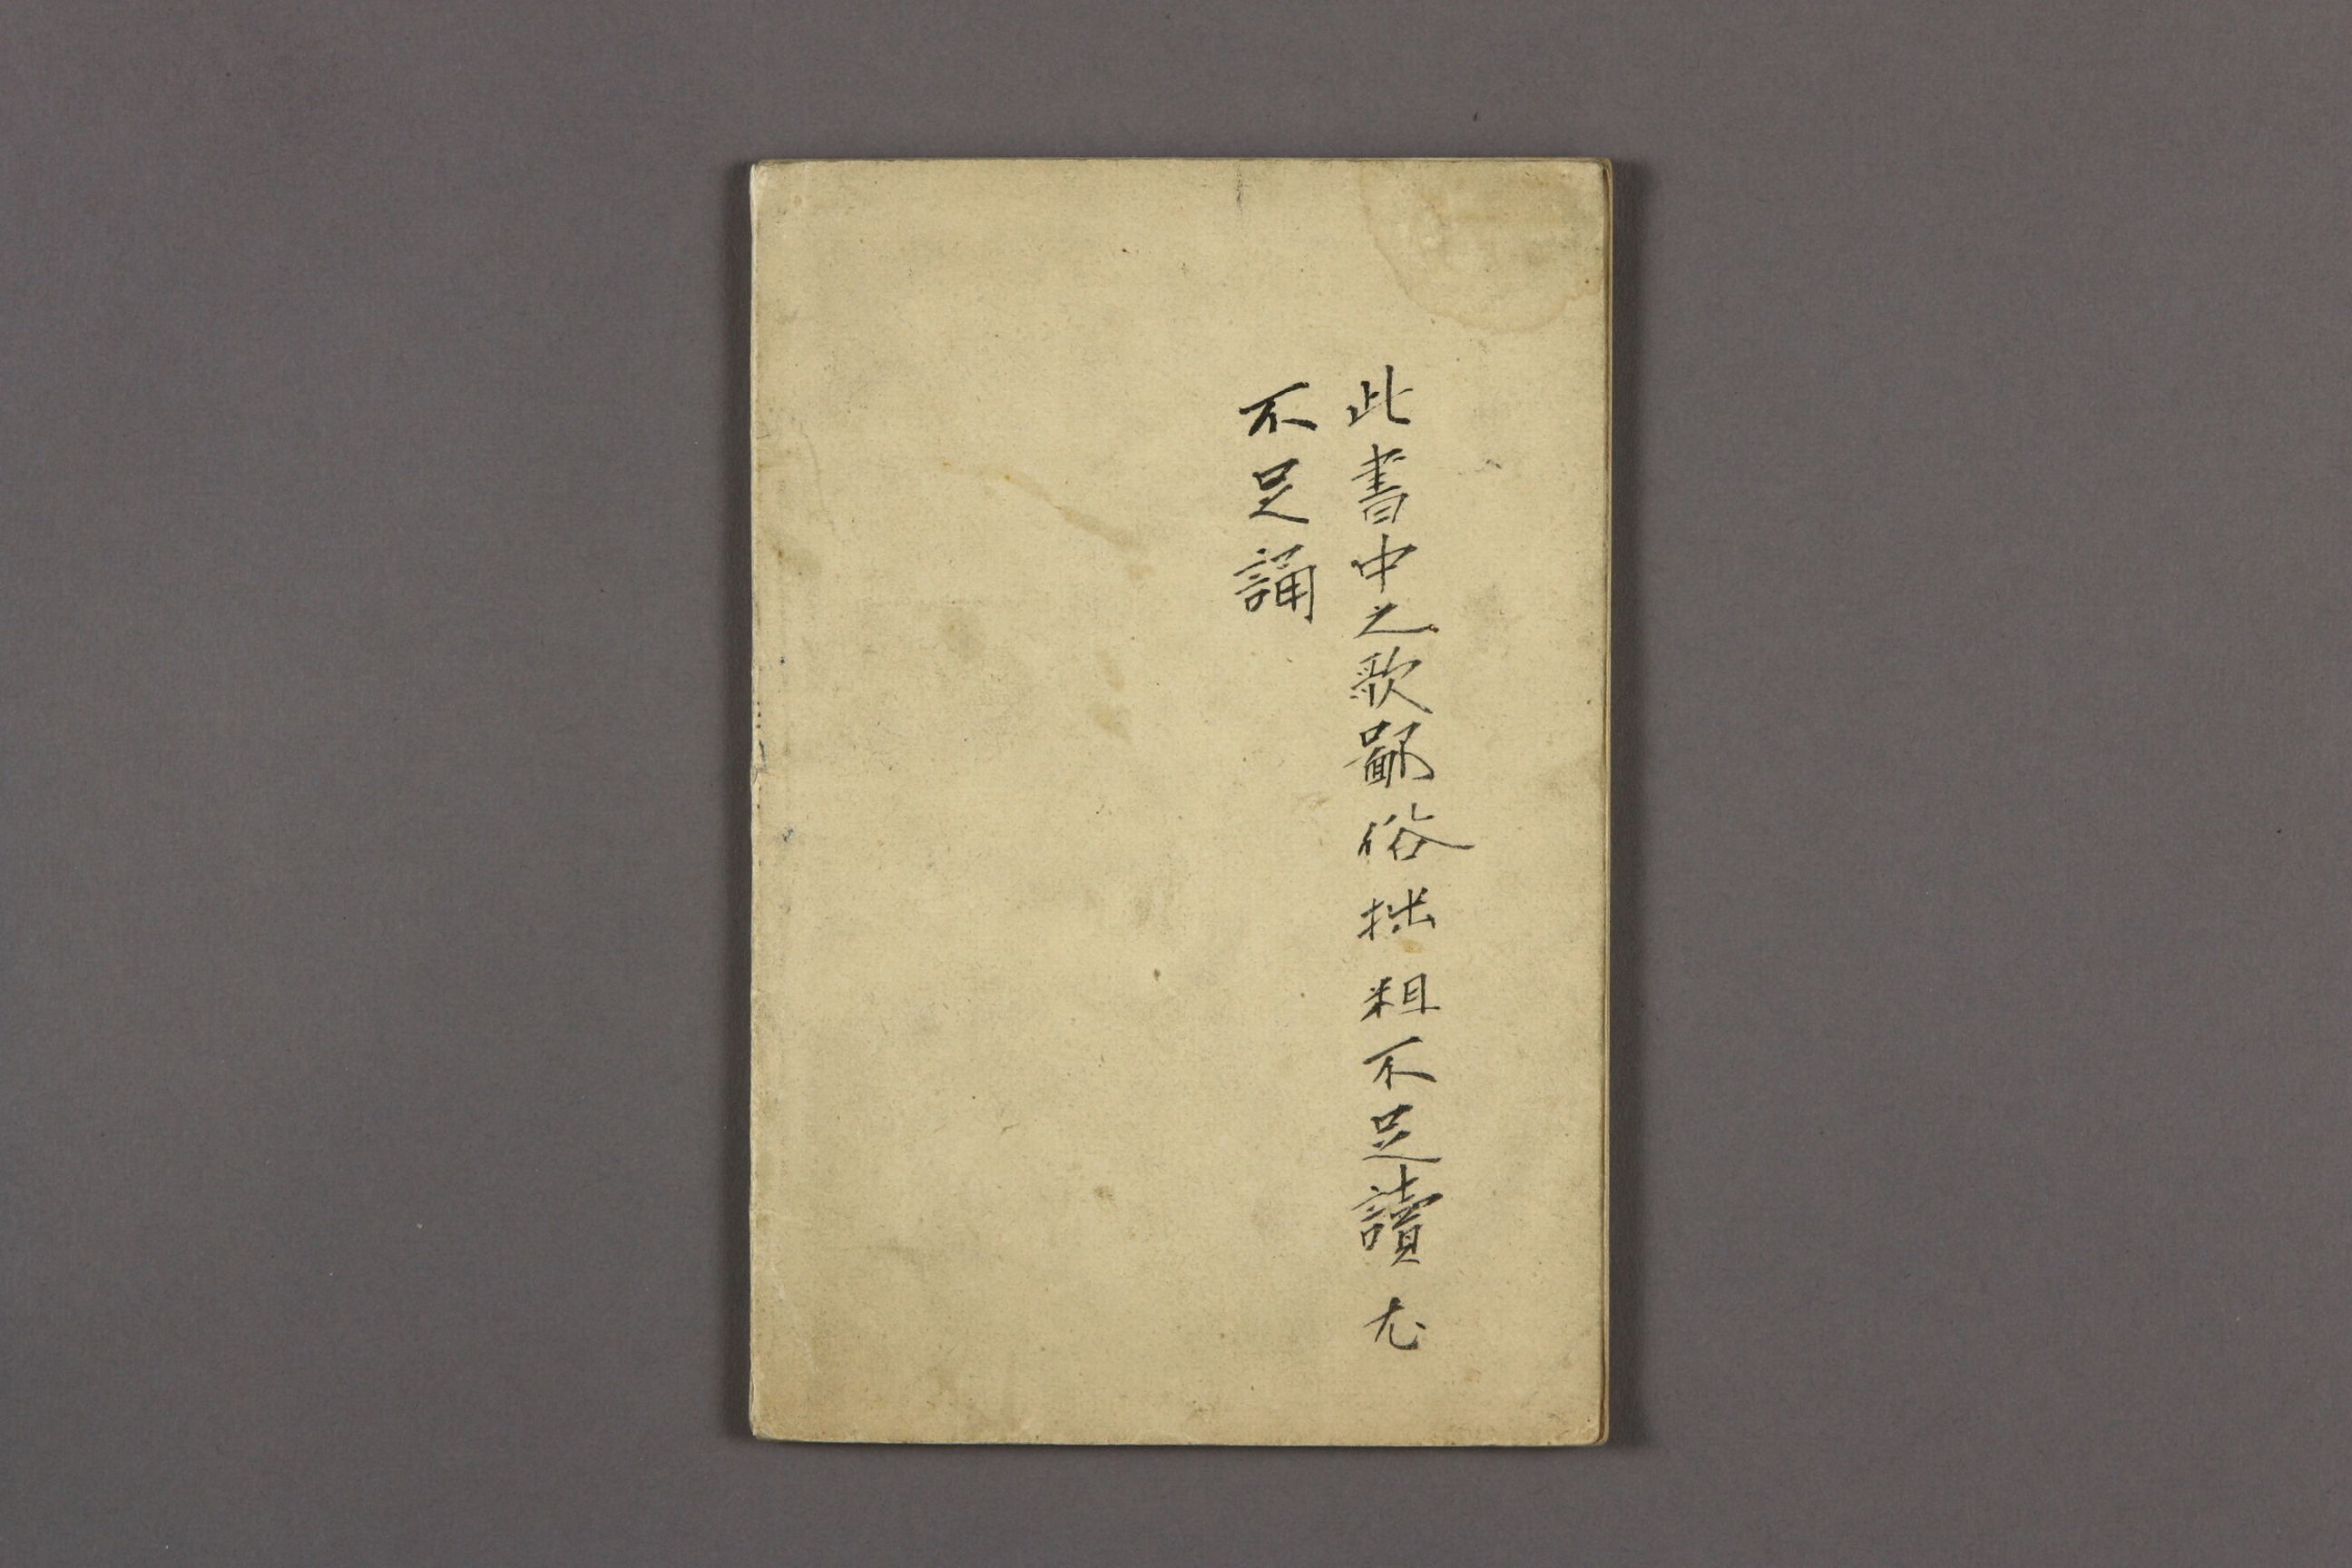 此書中之歌鄙俗拙粗不足讀尤
不足誦